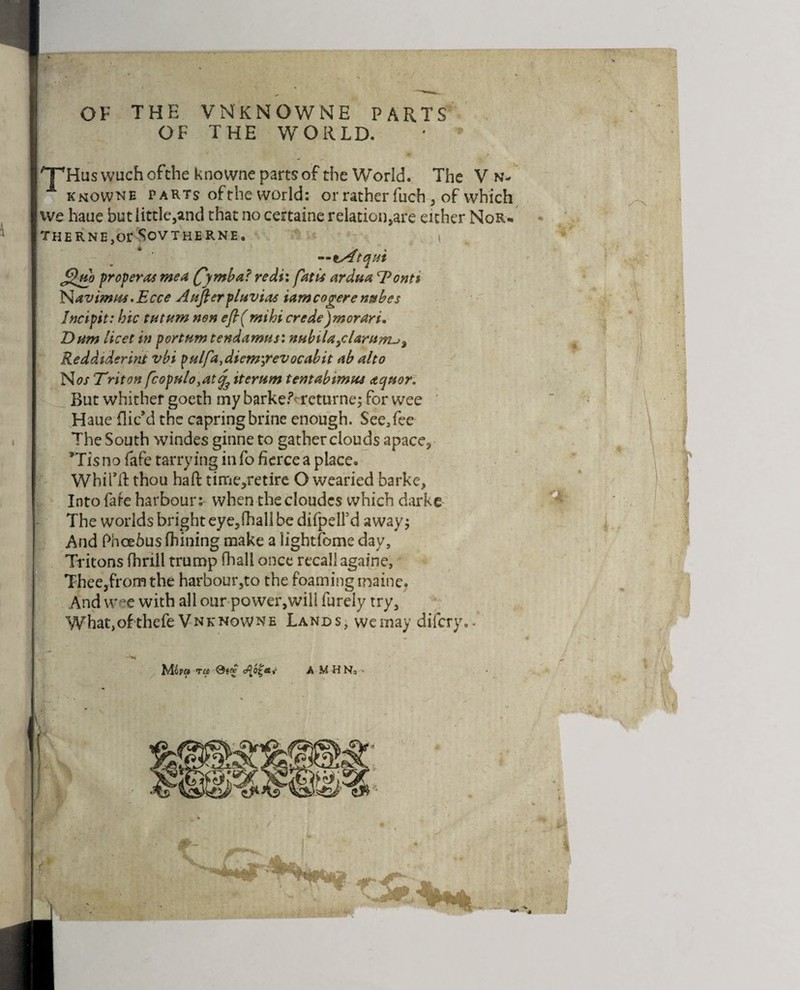 OF THE VNKNOWNE PARTS
OF THE WORLD.
THus much of the knowne parts of the World. The VN-
KNOWNE PARTS of the world: or rather ſuch, of which
we haue but little, and that no certaine relation, are either NOR-
THERNE, or SOVTHERNE.
--Atqui
Quò properas mea Cymba? redi: fatis ardua Ponti
Navimus. Ecce Auſter pluvias iam cogere nubes
Incipit: hîc tutum non eſt (mihi crede) morari.
Dum licet in portum tendamus: nubila, clarum,
Reddiderint vbi pulſa, diem; revocabit ab alto
Nos Triton ſcopulo, atq; iterum tentabimus æquor.
But whither goeth my barke? returne; for wee
Haue ſlic'd the capring brine enough. See, ſee
The South windes ginne to gather clouds apace,
'Tis no ſafe tarrying in ſo fierce a place.
Whil'ſt thou haſt time, retire O wearied barke,
Into ſafe harbour: when the cloudes which darke
The worlds bright eye, ſhall be diſpell'd away;
And Phœbus ſhining make a lightſome day,
Tritons ſhrill trump ſhall once recall againe,
Thee, from the harbour, to the foaming maine,
And wee with all our power, will ſurely try,
What, of theſe VNKNOWNE LANDS, we may diſcry.
Μόνῳ τῷ Θεῷ δόξα. ΑΜΗΝ.